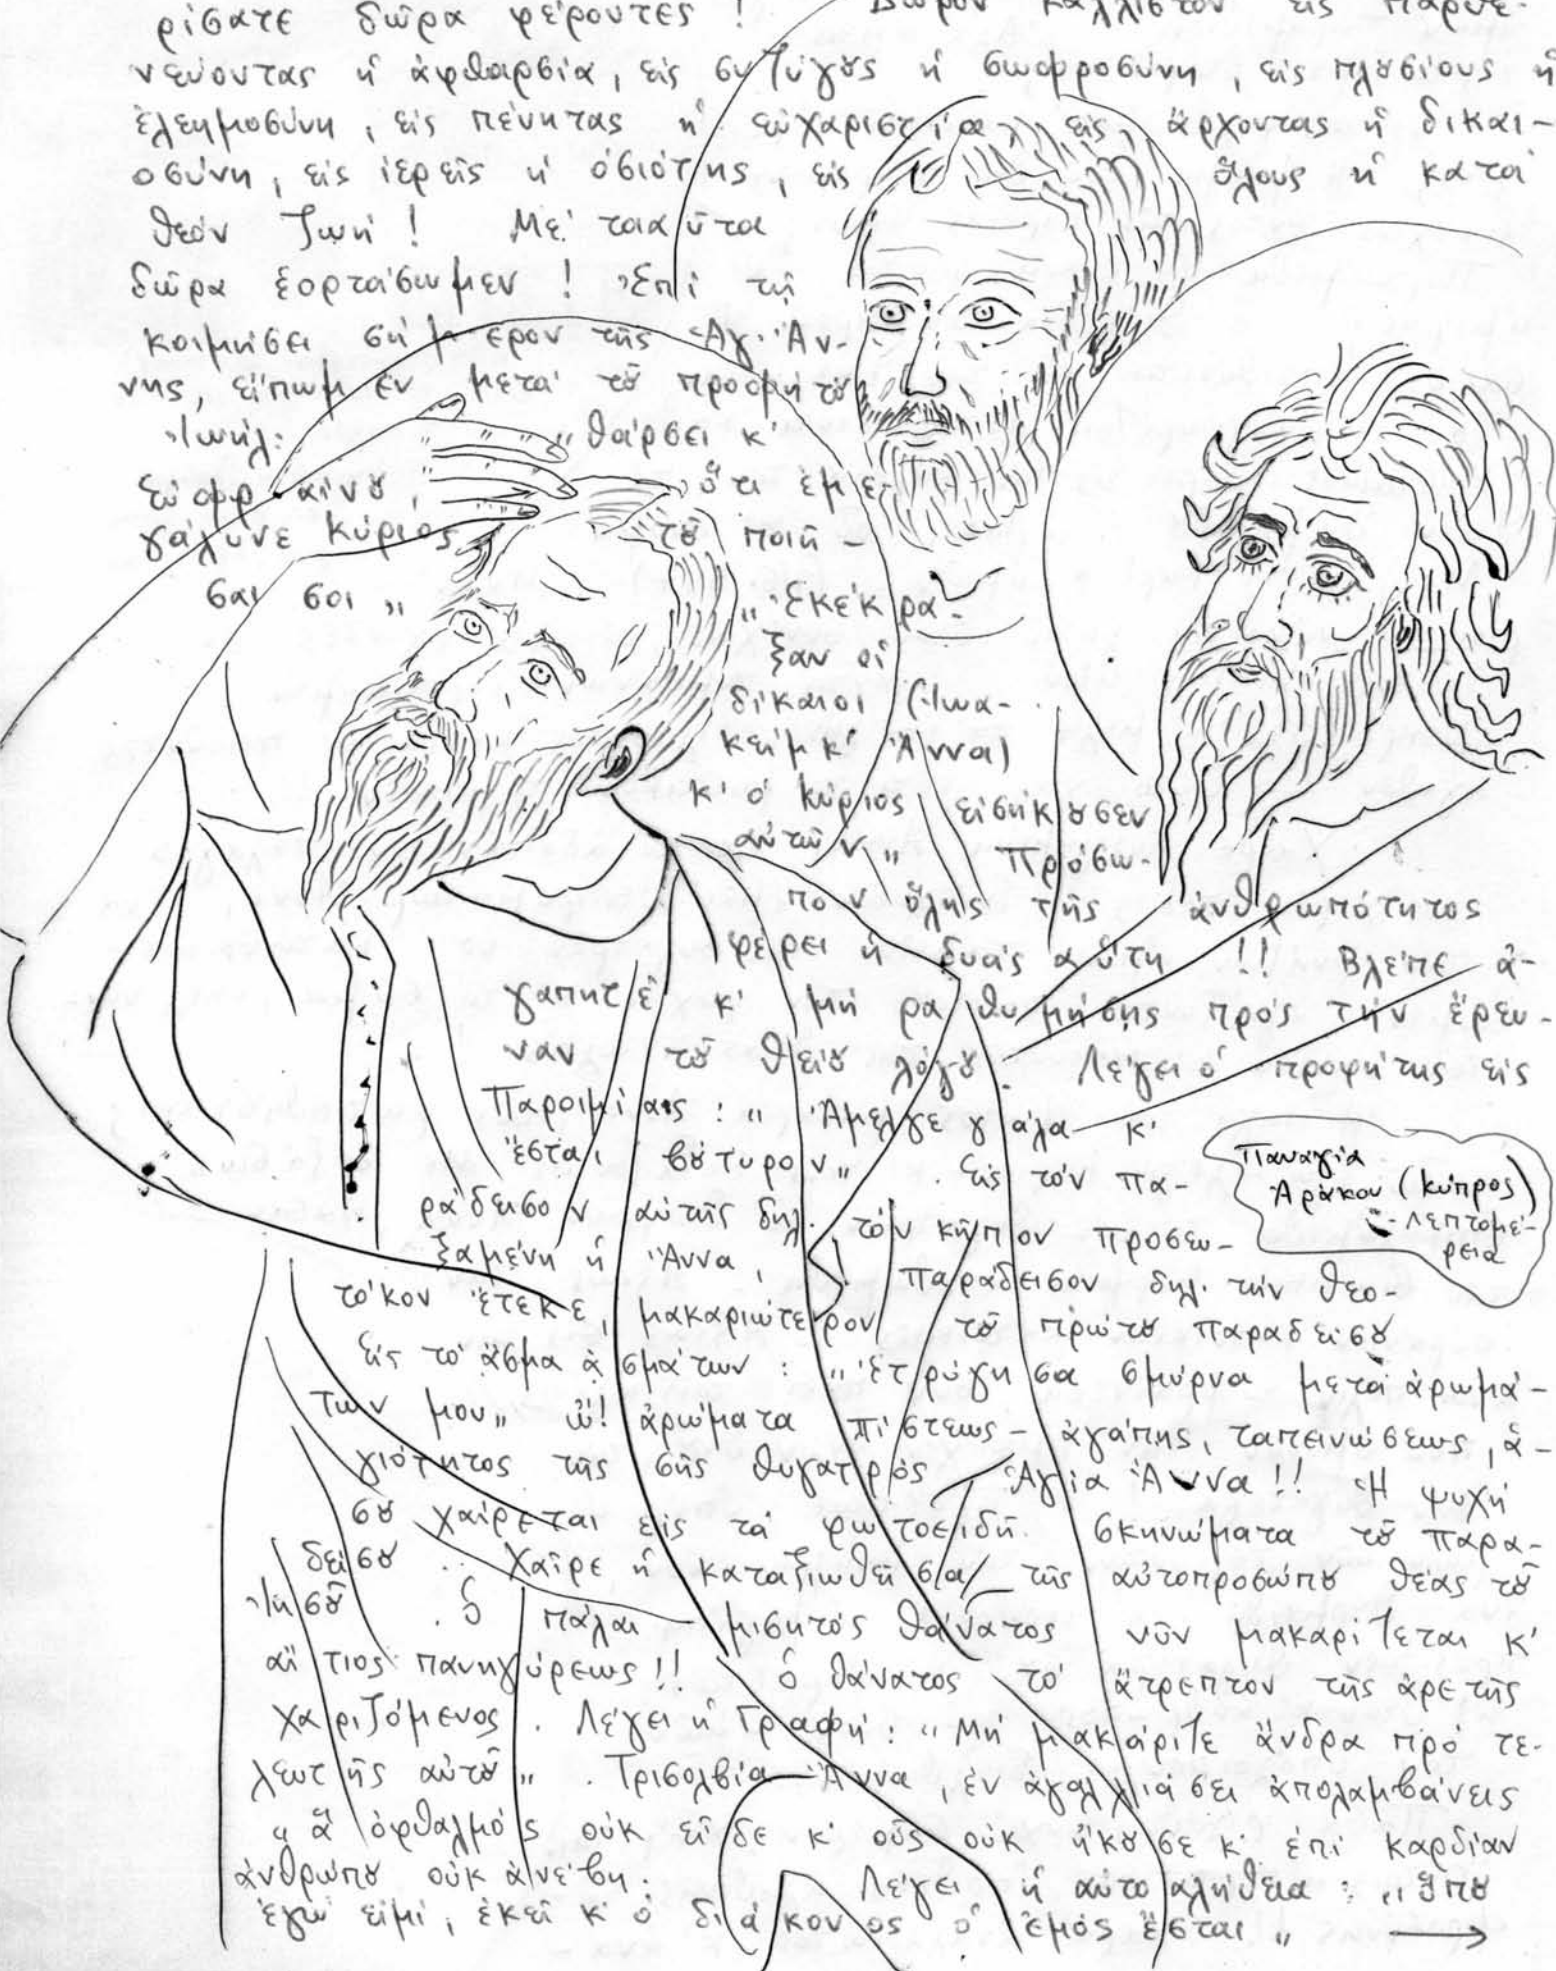 ρίσατε δῶρα φέροντες ! Δῶρον κάλλιστον εἰς παρθε-
νεύοντας ἡ ἀφθαρσία, εἰς συζύγȣς ἡ σωφροσύνη, εἰς πλȣσίους ἡ
ἐλεημοσύνη, εἰς πένητας ἡ εὐχαριστία, εἰς ἄρχοντας ἡ δικαι-
οσύνη, εἰς ἱερεῖς ἡ ὁσιότης, εἰς ὅλους ἡ κατά
θεόν ζωή! Μέ τοιαῦτα
δῶρα ἑορτάσωμεν ! Ἐπί τῇ
κοιμήσει σήμερον τῆς Ἁγ. Ἄν-
νης, εἴπωμεν μετά τȣ͂ προφήτȣ
Ἰωήλ: „ θάρσει κ'
εὐφραίνȣ, ὅτι ἐμε-
γάλυνε Κύριος τȣ͂ ποιῆ-
σαι σοι „ „ Ἐκέκρα-
ξαν οἱ
δίκαιοι (Ἰωα-
κείμ κ' Ἄννα)
κ' ὁ Κύριος εἰσήκȣσεν
αὐτῶν „ Πρόσω-
πον ὅλης τῆς ἀνθρωπότητος
φέρει ἡ δυάς αὕτη !! Βλέπε ἀ-
γαπητέ κ' μή ραθυμήσῃς πρός τήν ἔρευ-
ναν τȣ͂ θείȣ λόγȣ. Λέγει ὁ προφήτης εἰς
Παροιμίας : „ Ἄμελγε γάλα κ'
ἔσται βȣ́τυρον „ . Εἰς τόν πα-
ράδεισον αὐτῆς δηλ. τόν κῆπον προσευ-
ξαμένη ἡ Ἄννα, παράδεισον δηλ. τήν Θεο-
τόκον ἔτεκε, μακαριώτερον τȣ͂ πρώτȣ παραδείσȣ
Εἰς τό ἆσμα ἀσμάτων : „ Ἐτρύγησα σμύρνα μετά ἀρωμά-
των μου „ ὤ! ἀρώματα πίστεως - ἀγάπης, ταπεινώσεως, ἁ-
γιότητος τῆς σῆς θυγατρός Ἁγία Ἄννα!! Ἡ ψυχή
σȣ χαίρεται εἰς τά φωτοειδῆ σκηνώματα τȣ͂ παρα-
δείσȣ . Χαῖρε ἡ καταξιωθεῖσα τῆς αὐτοπροσώπȣ θέας τȣ͂
Ἰησȣ͂ . Ὁ πάλαι μισητός θάνατος νῦν μακαρίζεται κ'
αἴτιος πανηγύρεως!! Ὁ θάνατος τό ἄτρεπτον τῆς ἀρετῆς
χαριζόμενος . Λέγει ἡ Γραφή : „ Μή μακάριζε ἄνδρα πρό τε-
λευτῆς αὐτȣ͂ „ . Τρισολβία Ἄννα, ἐν ἀγαλλιάσει ἀπολαμβάνεις
„ ἅ ὀφθαλμός οὐκ εἶδε κ' οὖς οὐκ ἤκȣσε κ' ἐπί καρδίαν
ἀνθρώπȣ οὐκ ἀνέβη. Λέγει ἡ αὐτοαλήθεια : „ ὅπȣ
ἐγώ εἰμί, ἐκεῖ κ' ὁ διάκονος ὁ ἐμός ἔσται „ →
Παναγία
Ἀράκου (Κύπρος)
- Λεπτομέ-
ρεια